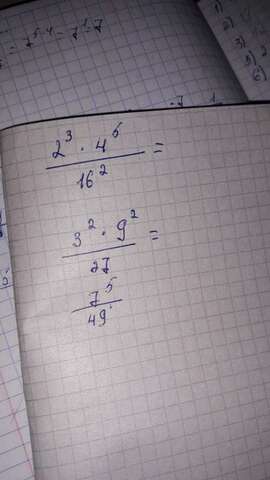 = 7⁵⁻⁴ = 7¹ = 7
1)
2)
3)
5)
6)
2³ · 4⁵
16²
=
3² · 9²
27
=
7⁵
49